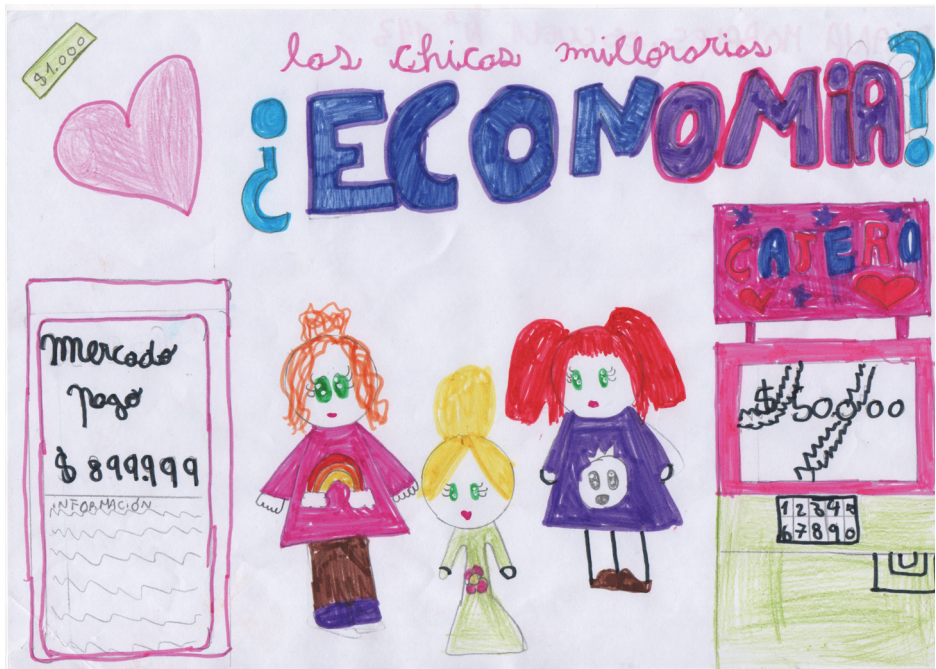 $1.000
las chicas millonarias
¿ECONOMIA?
CAJERO
Mercado
pago
$ 899.999
INFORMACIÓN
$ 500,00
1 2 3 4 5
6 7 8 9 0